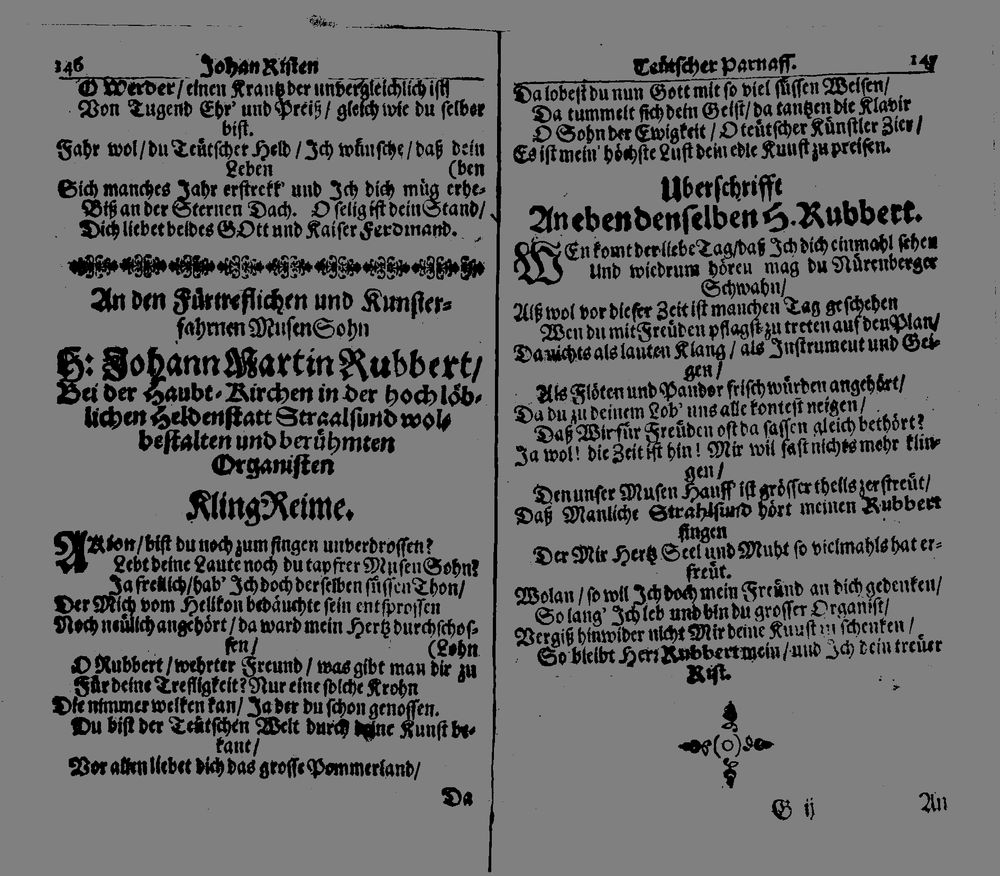 146 Johan Risten
O Werder / einen Krantz der unvergleichlich ist!
Von Tugend Ehr' und Preiß / gleich wie du selber
bist.
Fahr wol / du Teütscher Held / Ich wünsche / daß dein
Leben (ben
Sich manches Jahr erstrekk' und Ich dich müg erhe-
Biß an der Sternen Dach. O selig ist dein Stand /
Dich liebet beides GOtt und Kaiser Ferdinand.
An den Fürtreflichen und Kunster-
fahrnen MusenSohn
H: Johann Martin Rubbert /
Bei der Haubt-Kirchen in der hoch löb-
lichen Heldenstatt Straalsund wol-
bestalten und berühmten
Organisten
KlingReime.
ARion / bist du noch zum singen unverdrossen?
Lebt deine Laute noch du tapfrer MusenSohn?
Ja freilich / hab' Ich doch derselben süssen Thon /
Der Mich vom Helikon bedäuchte sein entsprossen
Noch neülich angehört / da ward mein Hertz durchschos-
sen / (Lohn
O Rubbert / wehrter Freund / was gibt man dir zu
Für deine Trefligkeit? Nur eine solche Krohn
Die nimmer welken kan / Ja der du schon genossen.
Du bist der Teütschen Welt durch deine Kunst be-
kant /
Vor allen liebet dich das grosse Pommerland /
Da
Teütscher Parnass. 147
Da lobest du nun Gott mit so viel süssen Weisen /
Da tummelt sich dein Geist / da tantzen die Klavir
O Sohn der Ewigkeit / O teütscher Künstler Zier /
Es ist mein' höchste Lust dein edle Kunst zu preisen.
Uberschrifft
An eben denselben H. Rubbert.
WEn komt der liebe Tag / daß Ich dich einmahl sehen
Und wiedrum hören mag du Nürenberger
Schwahn /
Alß wol vor dieser Zeit ist manchen Tag geschehen
Wen du mit Freüden pflagst zu treten auf den Plan /
Da nichts als lauten Klang / als Instrument und Gei-
gen /
Als Flöten und Pandor frisch würden angehört /
Da du zu deinem Lob' uns alle kontest neigen /
Daß Wir für Freüden oft da sassen gleich bethört?
Ja wol! die Zeit ist hin! Mir wil fast nichts mehr klin-
gen /
Den unser Musen Hauff' ist grösser theils zerstreüt /
Daß Manliche Strahlsund hört meinen Rubbert
singen
Der Mir Hertz Seel und Muht so vielmahls hat er-
freüt.
Wolan / so wil Ich doch mein Freünd an dich gedenken /
So lang' Ich leb und bin du grosser Organist /
Vergiß hinwider nicht Mir deine Kunst zu schenken /
So bleibt Herr Rubbert mein / und Ich dein treüer
Rist.
G ij An